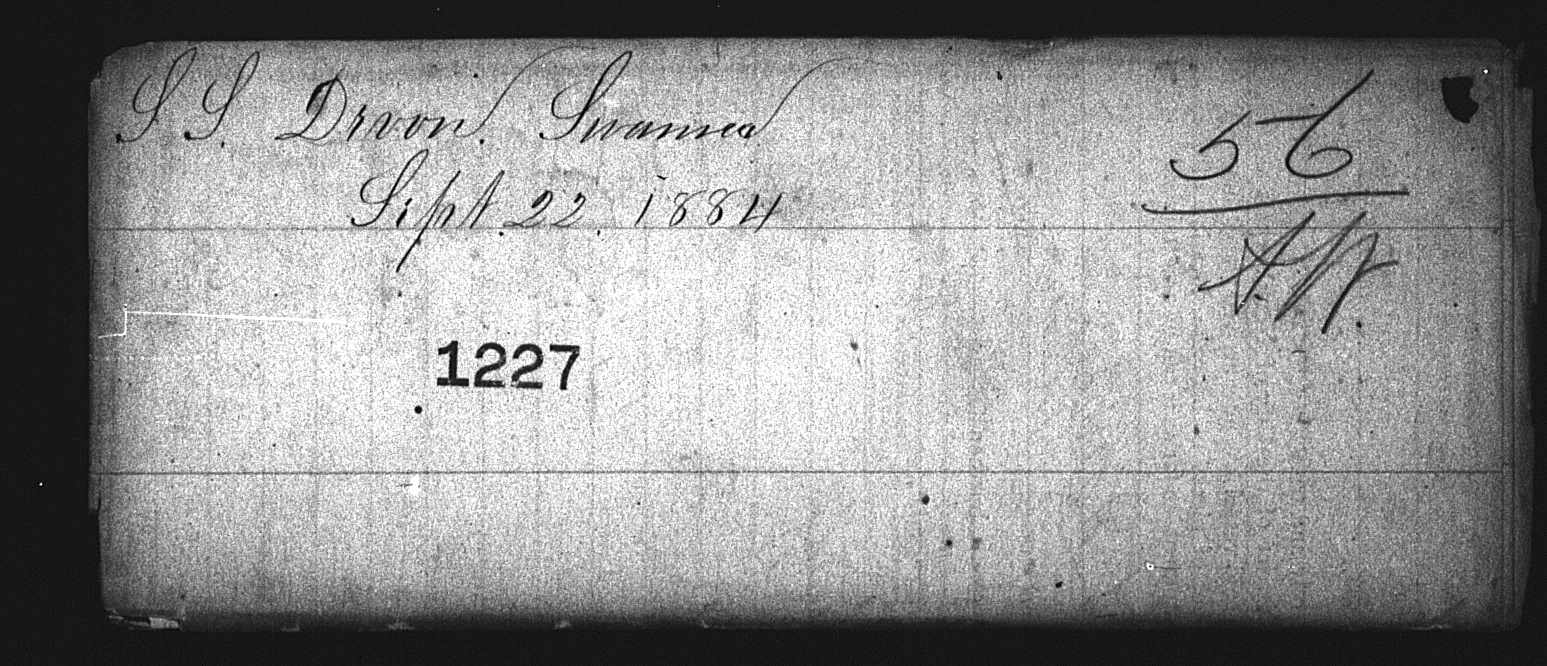 S.S. Devon. Swansea
Sept. 22. 1884
56
1227